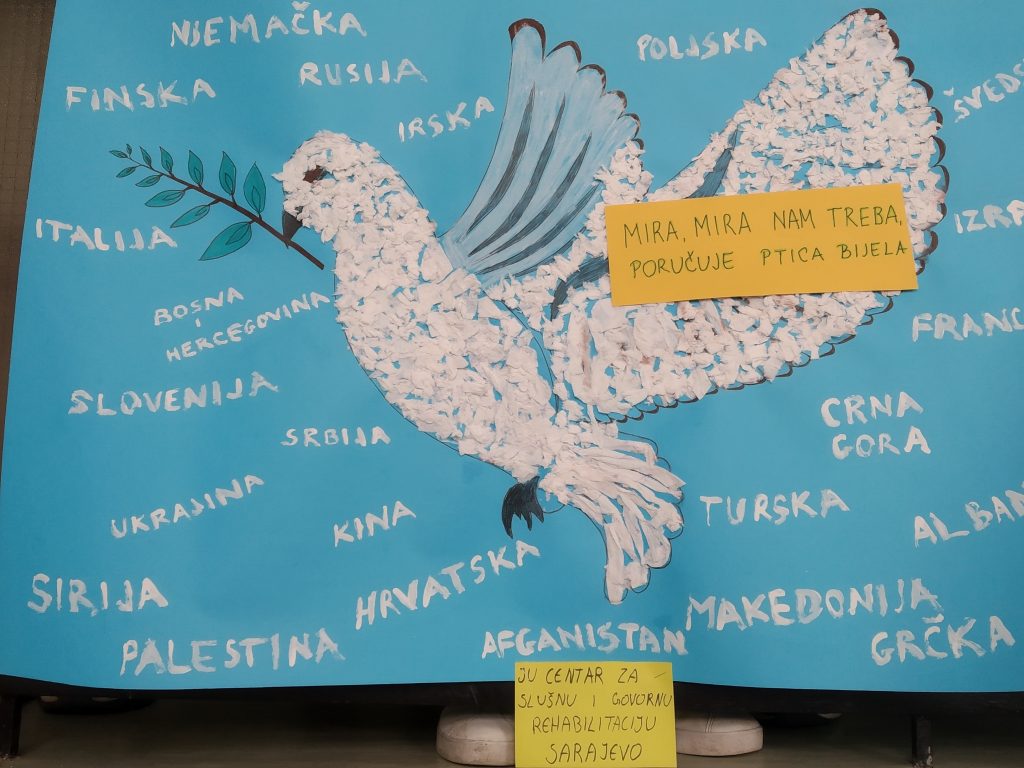 NJEMAČKA
POLJSKA
RUSIJA
FINSKA
IRSKA
ŠVEDS
ITALIJA
IZRA
MIRA, MIRA NAM TREBA,
PORUČUJE PTICA BIJELA
BOSNA
I
HERCEGOVINA
FRANC
SLOVENIJA
SRBIJA
CRNA
GORA
UKRAJINA
KINA
TURSKA
ALBAN
SIRIJA
HRVATSKA
MAKEDONIJA
PALESTINA
AFGANISTAN
GRČKA
JU CENTAR ZA
SLUŠNU I GOVORNU
REHABILITACIJU
SARAJEVO